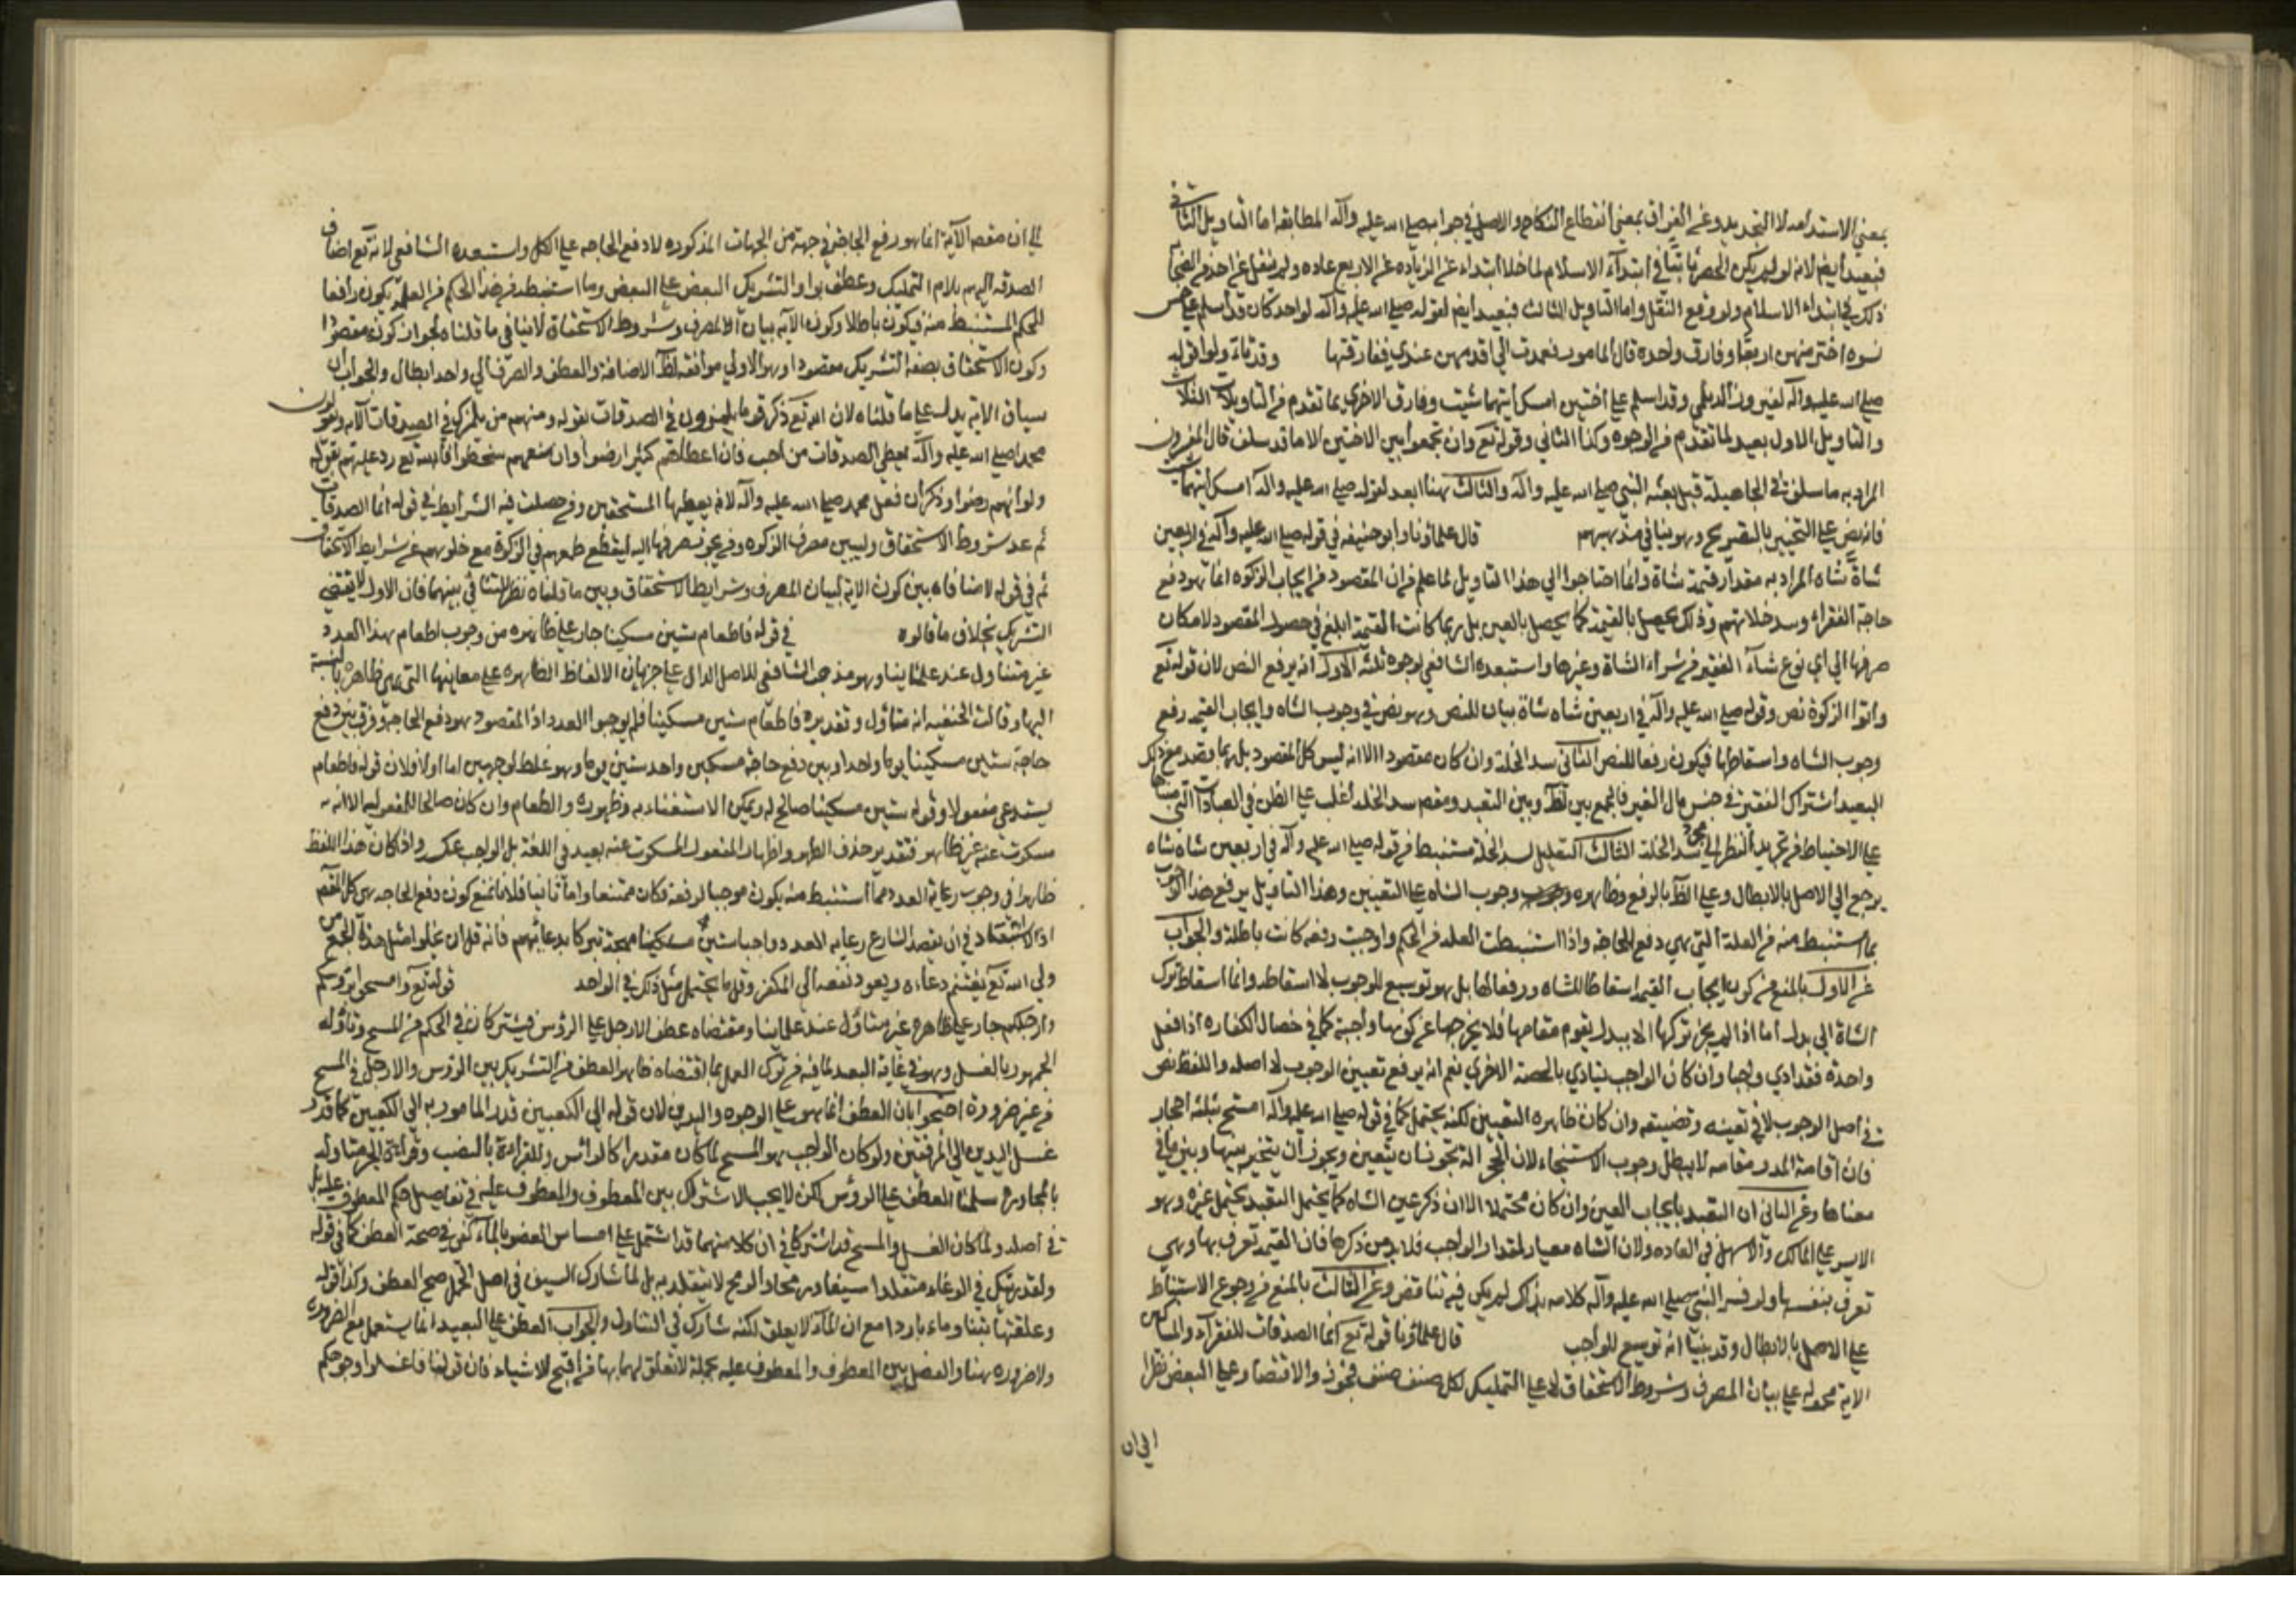 بمعني الاستدامه لا التجديد وعن الفراق بمعني انقطاع النكاح والاصل في جوابه صلي الله عليه وآله المطابقه اما التاويل الثاني
فبعيد ايضا لانه لو لم يكن الحصر ثابتا في ابتداء الاسلام لما خلا ابتداء عن الزياده عن الاربع عاده ولم ينقل عن احد من الصحابة
ذلك في ابتداء الاسلام ولو وقع النقل واما التاويل الثالث فبعيد ايضا لقوله صلي الله عليه وآله لواحد كان قد اسلم علي خمس
نسوه اختر منهن اربعا وفارق واحده قال المامور فعمدت الي اقدمهن عندي ففارقتها وقد تاولوا قوله
صلي الله عليه وآله لفيروز الديلمي وقد اسلم علي اختين امسك ايتهما شئت وفارق الاخري بما تقدم من التاويلات الثلاث
والتاويل الاول بعيد لما تقدم من الوجوه وكذا الثاني وقوله تع وان تجمعوا بين الاختين الا ما قد سلف قال المفسرون
المراد به ما سلف في الجاهلية قبل بعثه النبي صلي الله عليه وآله والثالث هنا ابعد لقوله صلي الله عليه وآله امسك ايتهما شئت
فانه نص علي التخيير بالتصريح وهو ينافي مذهبهم قال علماؤنا وابو حنيفه في قوله صلي الله عليه وآله في اربعين
شاة شاه المراد به مقدار قيمة شاة وانما احتاجوا الي هذا التاويل لما علم من ان المقصود من ايجاب الزكوه انما هو دفع
حاجة الفقراء وسد خلاتهم وذلك يحصل بالقيمة كما يحصل بالعين بل ربما كانت القيمة ابلغ في حصول المقصود لامكان
صرفها الي اي نوع شآء الفقير من شراء الشاة وغيرها واستبعده الشافعي لوجوه ثلثه الاول انه يرفع النص لان قوله تع
واتوا الزكوة نص وقوله صلي الله عليه وآله في اربعين شاه شاة بيان للنص وهو نص في وجوب الشاه وايجاب القيمه رفع
وجوب الشاه واسقاطها فيكون رفعا للنص الثاني سد الخلة وان كان مقصودا الا انه ليس كل المقصود بل ربما وقصد مع ذلك
البعيد اشتراك الفقير في جنس مال الغير فالجمع بين لفظ وبين التعبد ومقص سد الخله اغلب علي الظن في العبادات التي مبناها
علي الاحتياط من تجريد النظر الي مجرد سد الخلة الثالث التعليل لسد الخلة مستنبط من قوله صلي الله عليه وآله في اربعين شاه شاه
يرجع الي الاصل بالابطال وعلي الظ بالرفع وظاهره وجوب الشاه علي التعيين وهذا التاويل يرفع هذا الوجوب
بما استنبط منه من العلة التي هي دفع الحاجه واذا استنبطت العله من الحكم واوجبت رفعه كانت باطلة والجواب
عن الاول بالمنع من كون ايجاب القيمه اسقاطا للشاه ورفعا لها بل هو توسيع للوجوب لا اسقاطه وانما اسقاط ترك
الشاة الي بدل اما اذا لم يجز تركها الا ببدل يقوم مقامها فلا يخرجها عن كونها واجبة كما في خصال الكفاره اذا فعل
واحدة فقد ادي واجبا وان كان الواجب يتادي بالخصلة الاخري نعم انه يرفع تعيين الوجوب لا اصله واللفظ نص
في اصل الوجوب لا في تعينه وتضيقه وان كان ظاهره التعيين لكنه يحتمل كما في قوله صلي الله عليه وآله استنج بثلثة احجار
فان اقامة المدر مقامه لا يبطل وجوب الاستنجاء لان الحجر آلة تجوز ان يتعين ويجوز ان يتخير بينها وبين ما في
معناها وعن الثاني ان التعبد بايجاب العين وان كان محتملا الا ان ذكر عين الشاه كما يحتمل التعبد يحتمل غيره وهو
الايسر علي المالك والاسهل في العاده ولان الشاه معيار لمقدار الواجب فلابد من ذكرها فان القيمه تعرف بها وهي
تعرف بنفسها ولو فسر النبي صلي الله عليه وآله كلامه بذلك لم يكن فيه تناقض وعن الثالث بالمنع من رجوع الاستنباط
علي الاصل بالابطال وقد بينا انه توسيع للواجب قال علماؤنا قوله تع انما الصدقات للفقرآء والمساكين
الاية محموله علي بيان المصرف وشروط الاستحقاق لا علي التمليك لكل صنف صنف فجوزوا الاقتصار علي البعض نظرا
الي ان
الي ان مقصد الآية انما هو رفع الحاجة في جهة من الجهات المذكوره لا دفع الحاجه علي الكل واستبعده الشافعي لانه تع اضاف
الصدقه اليهم بلام التمليك وعطف بواو التشريك البعض علي البعض وما استنبط من هذا الحكم من العلة يكون رافعا
للحكم المستنبط منه فيكون باطلا وكون الآيه بيان المصرف وشروط الاستحقاق لا ينافي ما قلناه لجواز كونه مقصودا
وكون الاستحقاق بصفه التشريك مقصودا وهو الاولي موافقه لظ الاضافة والعطف والصرف الي واحد ابطال والجواب ان
سياق الاية يدل علي ما قلناه لان الله تع ذكر قوما يلمزون في الصدقات لقوله ومنهم من يلمزك في الصدقات الآيه ويقولون
محمد صلي الله عليه وآله يعطي الصدقات من احب فان اعطاهم كثيرا رضوا وان منعهم سخطوا فالله تع رد عليهم بقوله
ولو انهم رضوا وذكر ان فعل محمد صلي الله عليه وآله لانه يعطيها المستحقين ومن حصلت فيه الشرايط في قوله انما الصدقات
ثم عد شروط الاستحقاق وليبين مصرف الزكوه ومن يجوز صرفها اليه ليقطع طمعهم في الزكوة مع خلوهم عن شرايط الاستحقاق
ثم في قوله لا منافاه بين كون الاية لبيان المصرف وشرايط الاستحقاق وبين ما قلناه نظر للتنافي بينهما فان الاول لا يقتضي
التشريك بخلاف ما قالوه في قوله فاطعام ستين مسكينا جار علي ظاهره من وجوب اطعام بهذا العدد
غير متناول عند علمائنا وهو مذهب الشافعي للاصل الدال علي جريان الالفاظ الظاهره علي معانيها التي هي ظاهره بالنسبة
اليها وقالت الحنفيه انه متاول وتقديره فاطعام ستين مسكينا فلم يوجبوا العدد اذ المقصود هو دفع الحاجة ولا فرق بين دفع
حاجة ستين مسكينا يوما واحدا وبين دفع حاجة مسكين واحد ستين يوما وهو غلط لوجهين اما اولا فلان قوله فاطعام
يستدعي مفعولا وقوله ستين مسكينا صالح له ويمكن الاستغناء به وظهوره والطعام وان كان صالحا للمفعوليه الا انه
مسكوت عنه غير ظاهر فتقدير حذف الظهر واظهار المفعول المسكوت عنه بعيد في اللغة بل الواجب عكسه واذا كان هذا اللفظ
ظاهرا في وجوب رعاية العدد مما استنبط منه يكون موجبا لرفعه فكان ممتنعا واما ثانيا فلانا نمنع كون دفع الحاجه هي كل المقصد
اذ لا استبعاد في ان يقصد الشارع رعايه العدد واحيا ستين مسكينا مهجة تبركا بدعائهم فانه قل ان يخلو مثل هذا الجمع من
ولي الله تع يغتنم دعاءه ويعود نفعه الي المكفر وقل ما يحتمل مثل ذلك في الواحد قوله تع وامسحوا برؤسكم
وارجلكم جار علي ظاهره غير متاول عند علمائنا ومقتضاه عطف الارجل علي الرؤس فيشتركان في الحكم من المسح وتأوله
الجمهور بالغسل وهو في غاية البعد لما فيه من ترك العمل بما اقتضاه ظاهر العطف من التشريك بين الرؤس والارجل في المسح
من غير ضرورة احتجوا بان العطف انما هو علي الوجوه واليدين لان قوله الي الكعبين قدر المامور به الي الكعبين كما قدر
غسل اليدين الي المرفقين ولو كان الواجب هو المسح لما كان مقدرا كالرائس وللقراءة بالنصب وقراءة الجر متاوله
بالمجاورة سلمنا العطف علي الرؤس لكن لا يجب الاشتراك بين المعطوف والمعطوف عليه في تفاصيل حكم المعطوف عليه بل
في اصله ولما كان الغسل والمسح قد اشتركا في ان كلا منهما قد اشتمل علي امساس العضو بالمآء كفي في صحة العطف كما في قوله
ولقد رايتك في الوغاء متقلدا سيفا ورمحا والرمح لا يتقلد به بل لما شارك السيف في اصل الحمل صح العطف وكذا قوله
وعلفتها تبنا وماء باردا مع ان المآء لا يعلف لكنه شارك في التناول والجواب العطف علي البعيد انما يستعمل مع الضرورة
ولا ضروره هنا والفصل بين المعطوف والمعطوف عليه بجملة لا تعلق لها بهما من اقبح الاشياء فان قولنا فاغسلوا وجوهكم